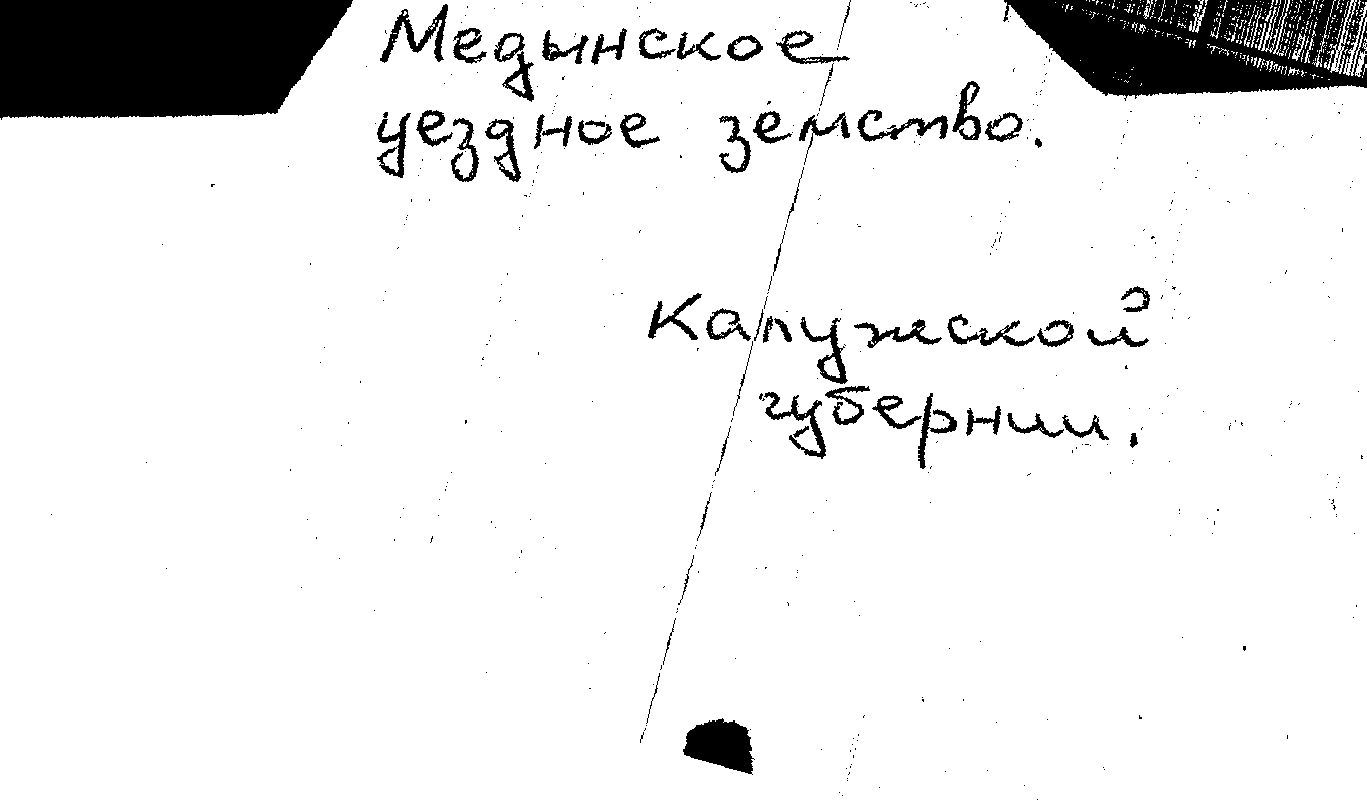 Медынское
уездное земство.
Калужской
губернии.